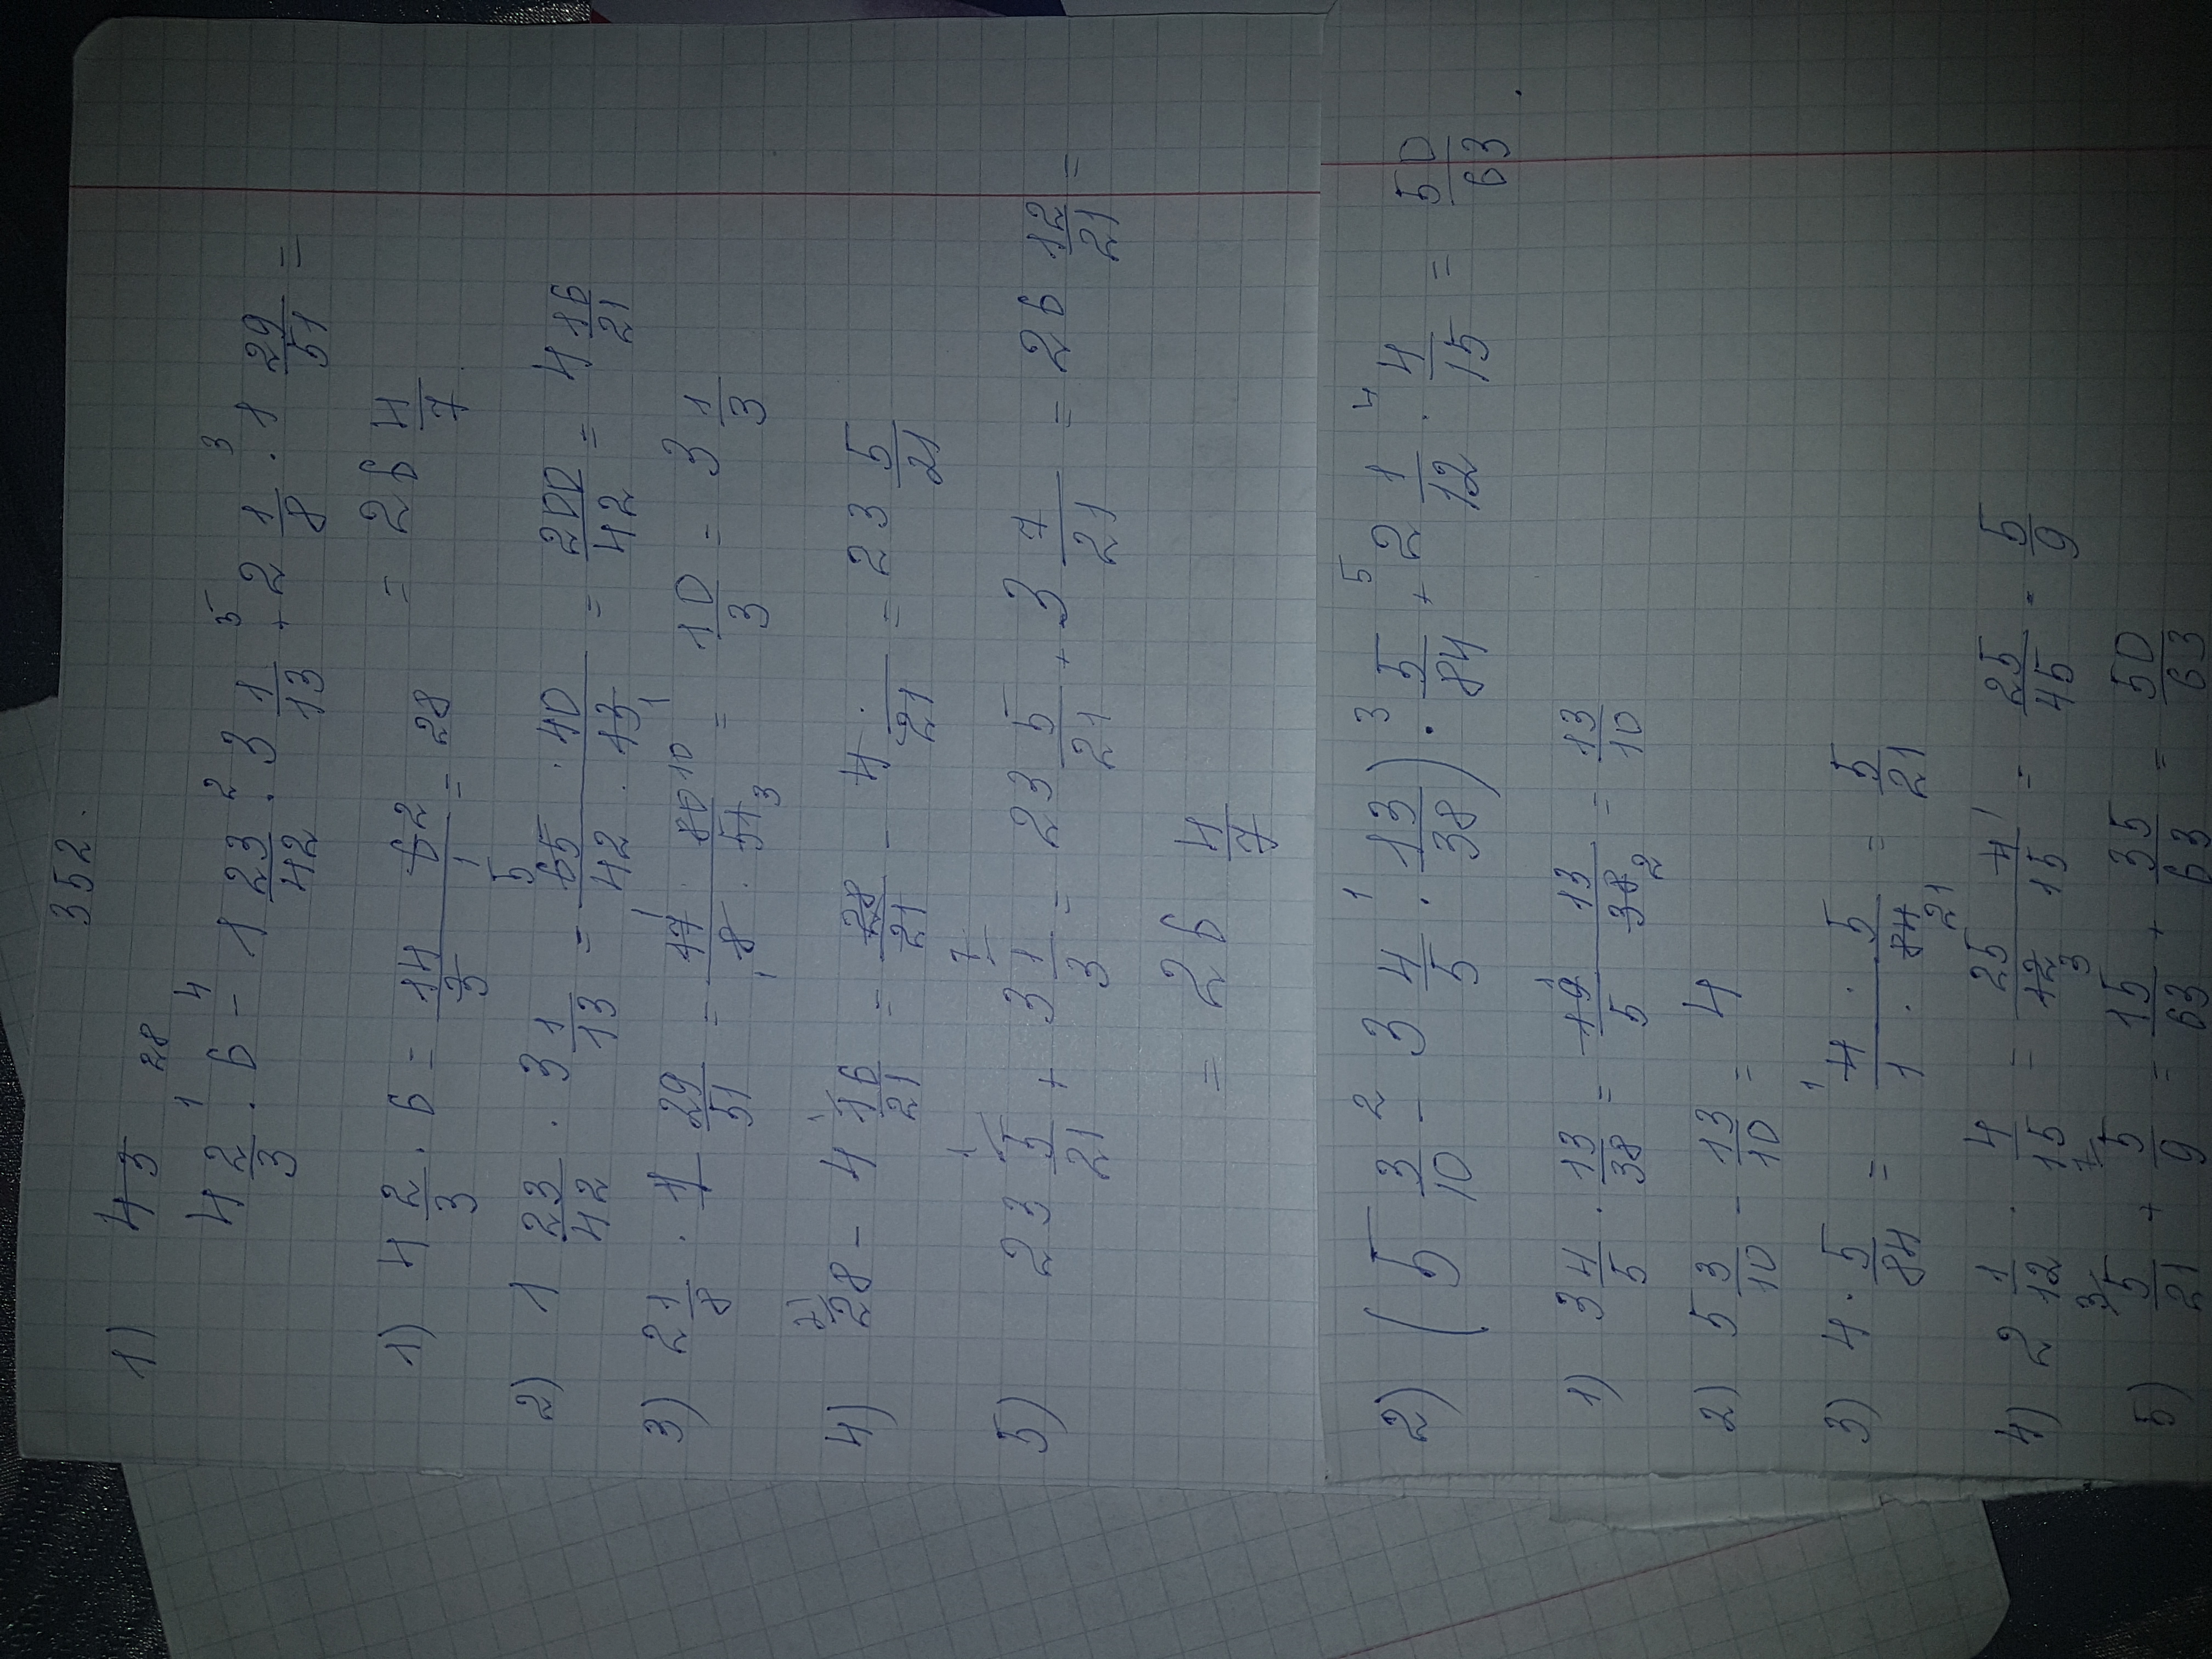 352.
1) 4 3 28
4 2/3 · 6 - 1 23/42 · 3 1/13 + 2 1/8 · 1 29/51 =
= 26 4/7
1) 4 2/3 · 6 = 14/3 62/1 = 28
2) 1 23/42 · 3 1/13 = 65 · 40 / 42 · 13 = 200/42 = 4 16/21
3) 2 1/8 · 1 29/51 = 17 · 80 / 8 · 51 = 10/3 = 3 1/3
4) 28 - 4 16/21 = 28/21 - 4/21 = 23 5/21
5) 23 5/21 + 3 1/3 = 23 5/21 + 3 7/21 = 26 12/21 =
= 26 4/7
2) (5 3/10 - 3 4/5 · 13/38) · 5/84 + 2 1/12 · 4/15 = 50/63
1) 3 4/5 · 13/38 = 19/5 13/38 = 13/10
2) 5 3/10 - 13/10 = 4
3) 4 · 5/84 = 4 · 5 / 1 · 84 = 5/21
4) 2 1/12 · 4/15 = 25 4 / 12 15 = 25/45 · 5/9
5) 5/21 + 5/9 = 15/63 + 35/63 = 50/63